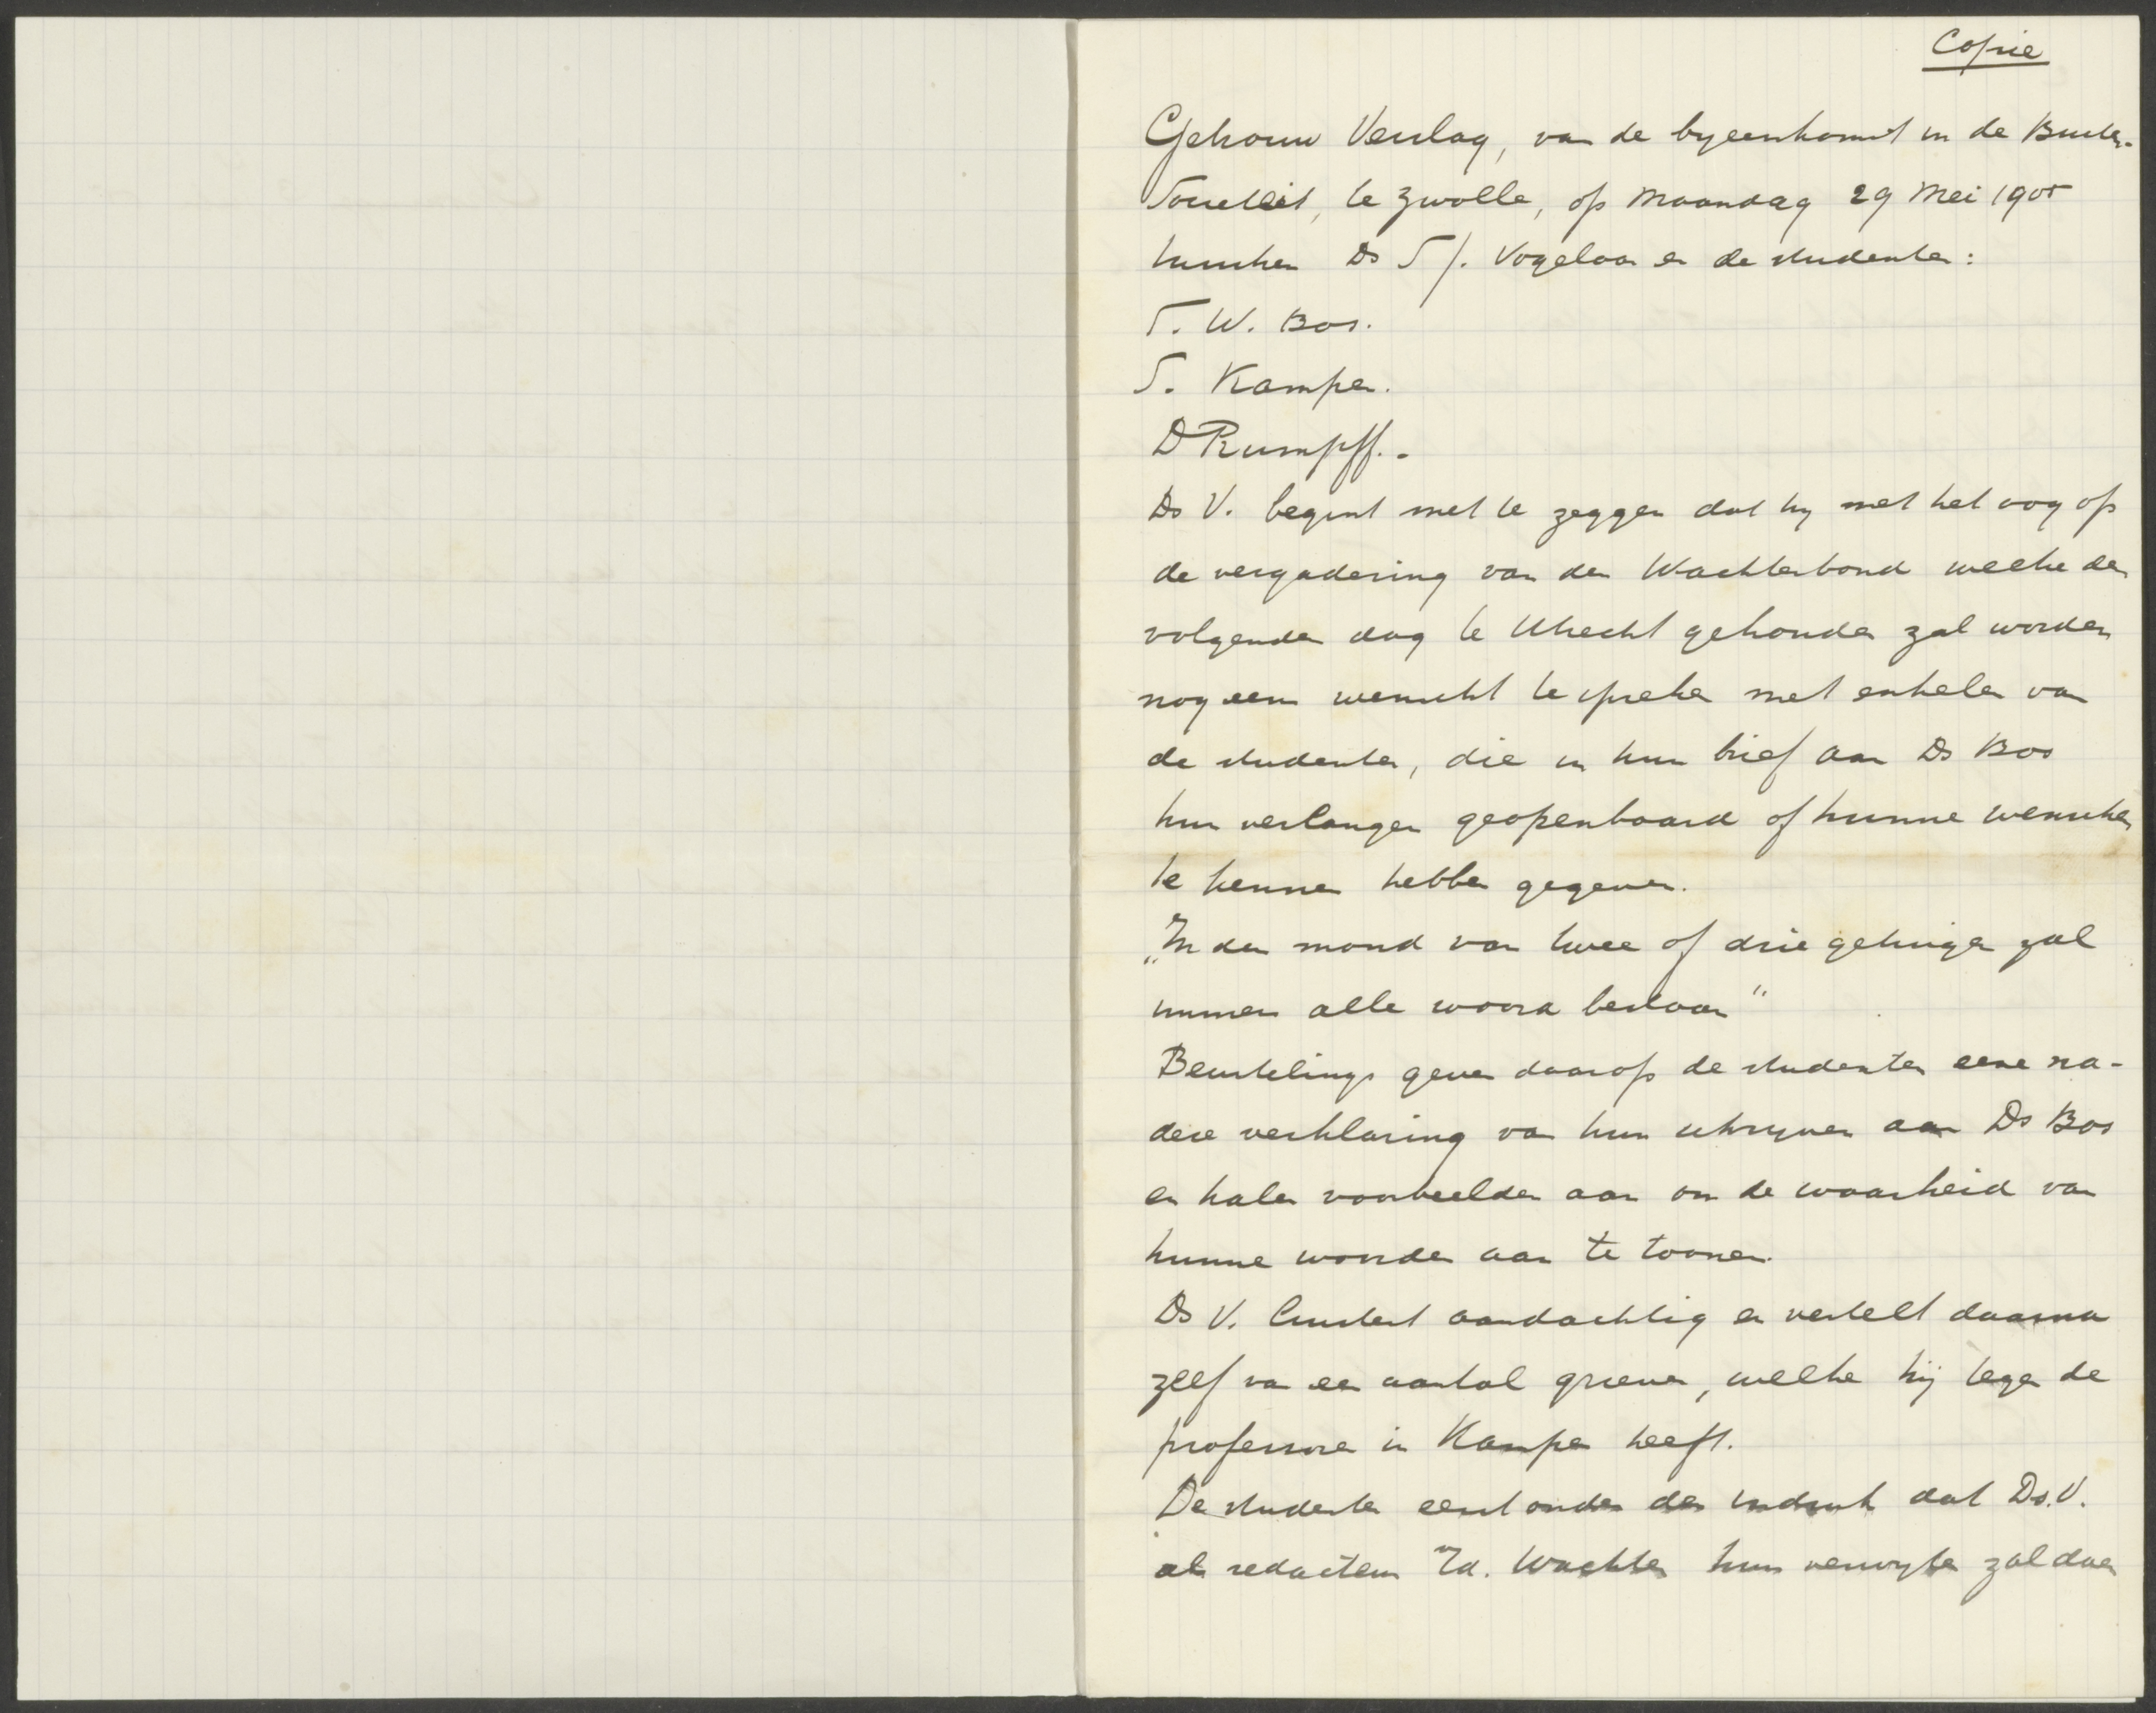 Copie
Getrouw Verslag, van de byeenkomst in de Buiten-
Societeit, te Zwolle, op Maandag 29 Mei 1905
tusschen Ds T. J. Vogelaar en de studenten:
T. W. Bos.
T. Kampen.
D Rumpff. -
Ds V. begint met te zeggen dat hy met het oog op
de vergadering van den Wachterbond welke den
volgenden dag te Utrecht gehouden zal worden
nog eens wenscht te spreken met enkelen van
de studenten, die in hun brief aan Ds Bos
hun verlangen geopenbaard of hunne wenschen
te kennen hebben gegeven.
„In den mond van twee of drie getuigen zal
immers alle woord bestaan"
Beurtelings geven daarop de studenten eene na-
dere verklaring van hun schryven aan Ds Bos
en halen voorbeelden aan om de waarheid van
hunne woorden aan te toonen.
Ds V. luistert aandachtig en vertelt daarna
zelf van een aantal grieven, welke hij tegen de
professoren in Kampen heeft.
De studenten eerst onder den indruk dat Ds. V.
als redacteur v/d. Wachter hun verwyten zal doen